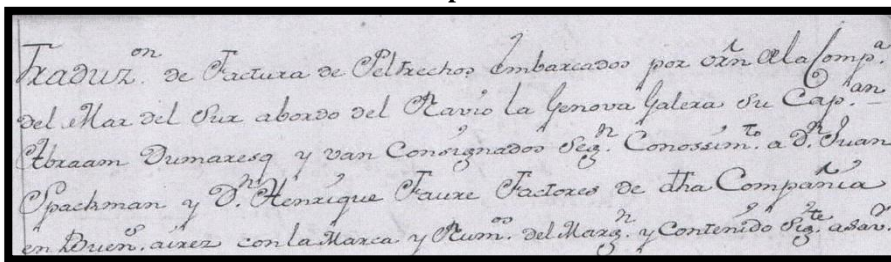 Traduz.on de Factura de Peltrechos embarcados por orn de la Comp.a
del Mar del Sur abordo del Navio la Genova Galera su Cap.an
Abraam Dumaresq y van Consignados Seg.n Conossim.to a D.n Juan
Spackman y D.n Henrique Faure Factores de dha Compañia
en Buen.s aires con la Marca y Num.os del Marg.n y Contenido Sig.te asav.r